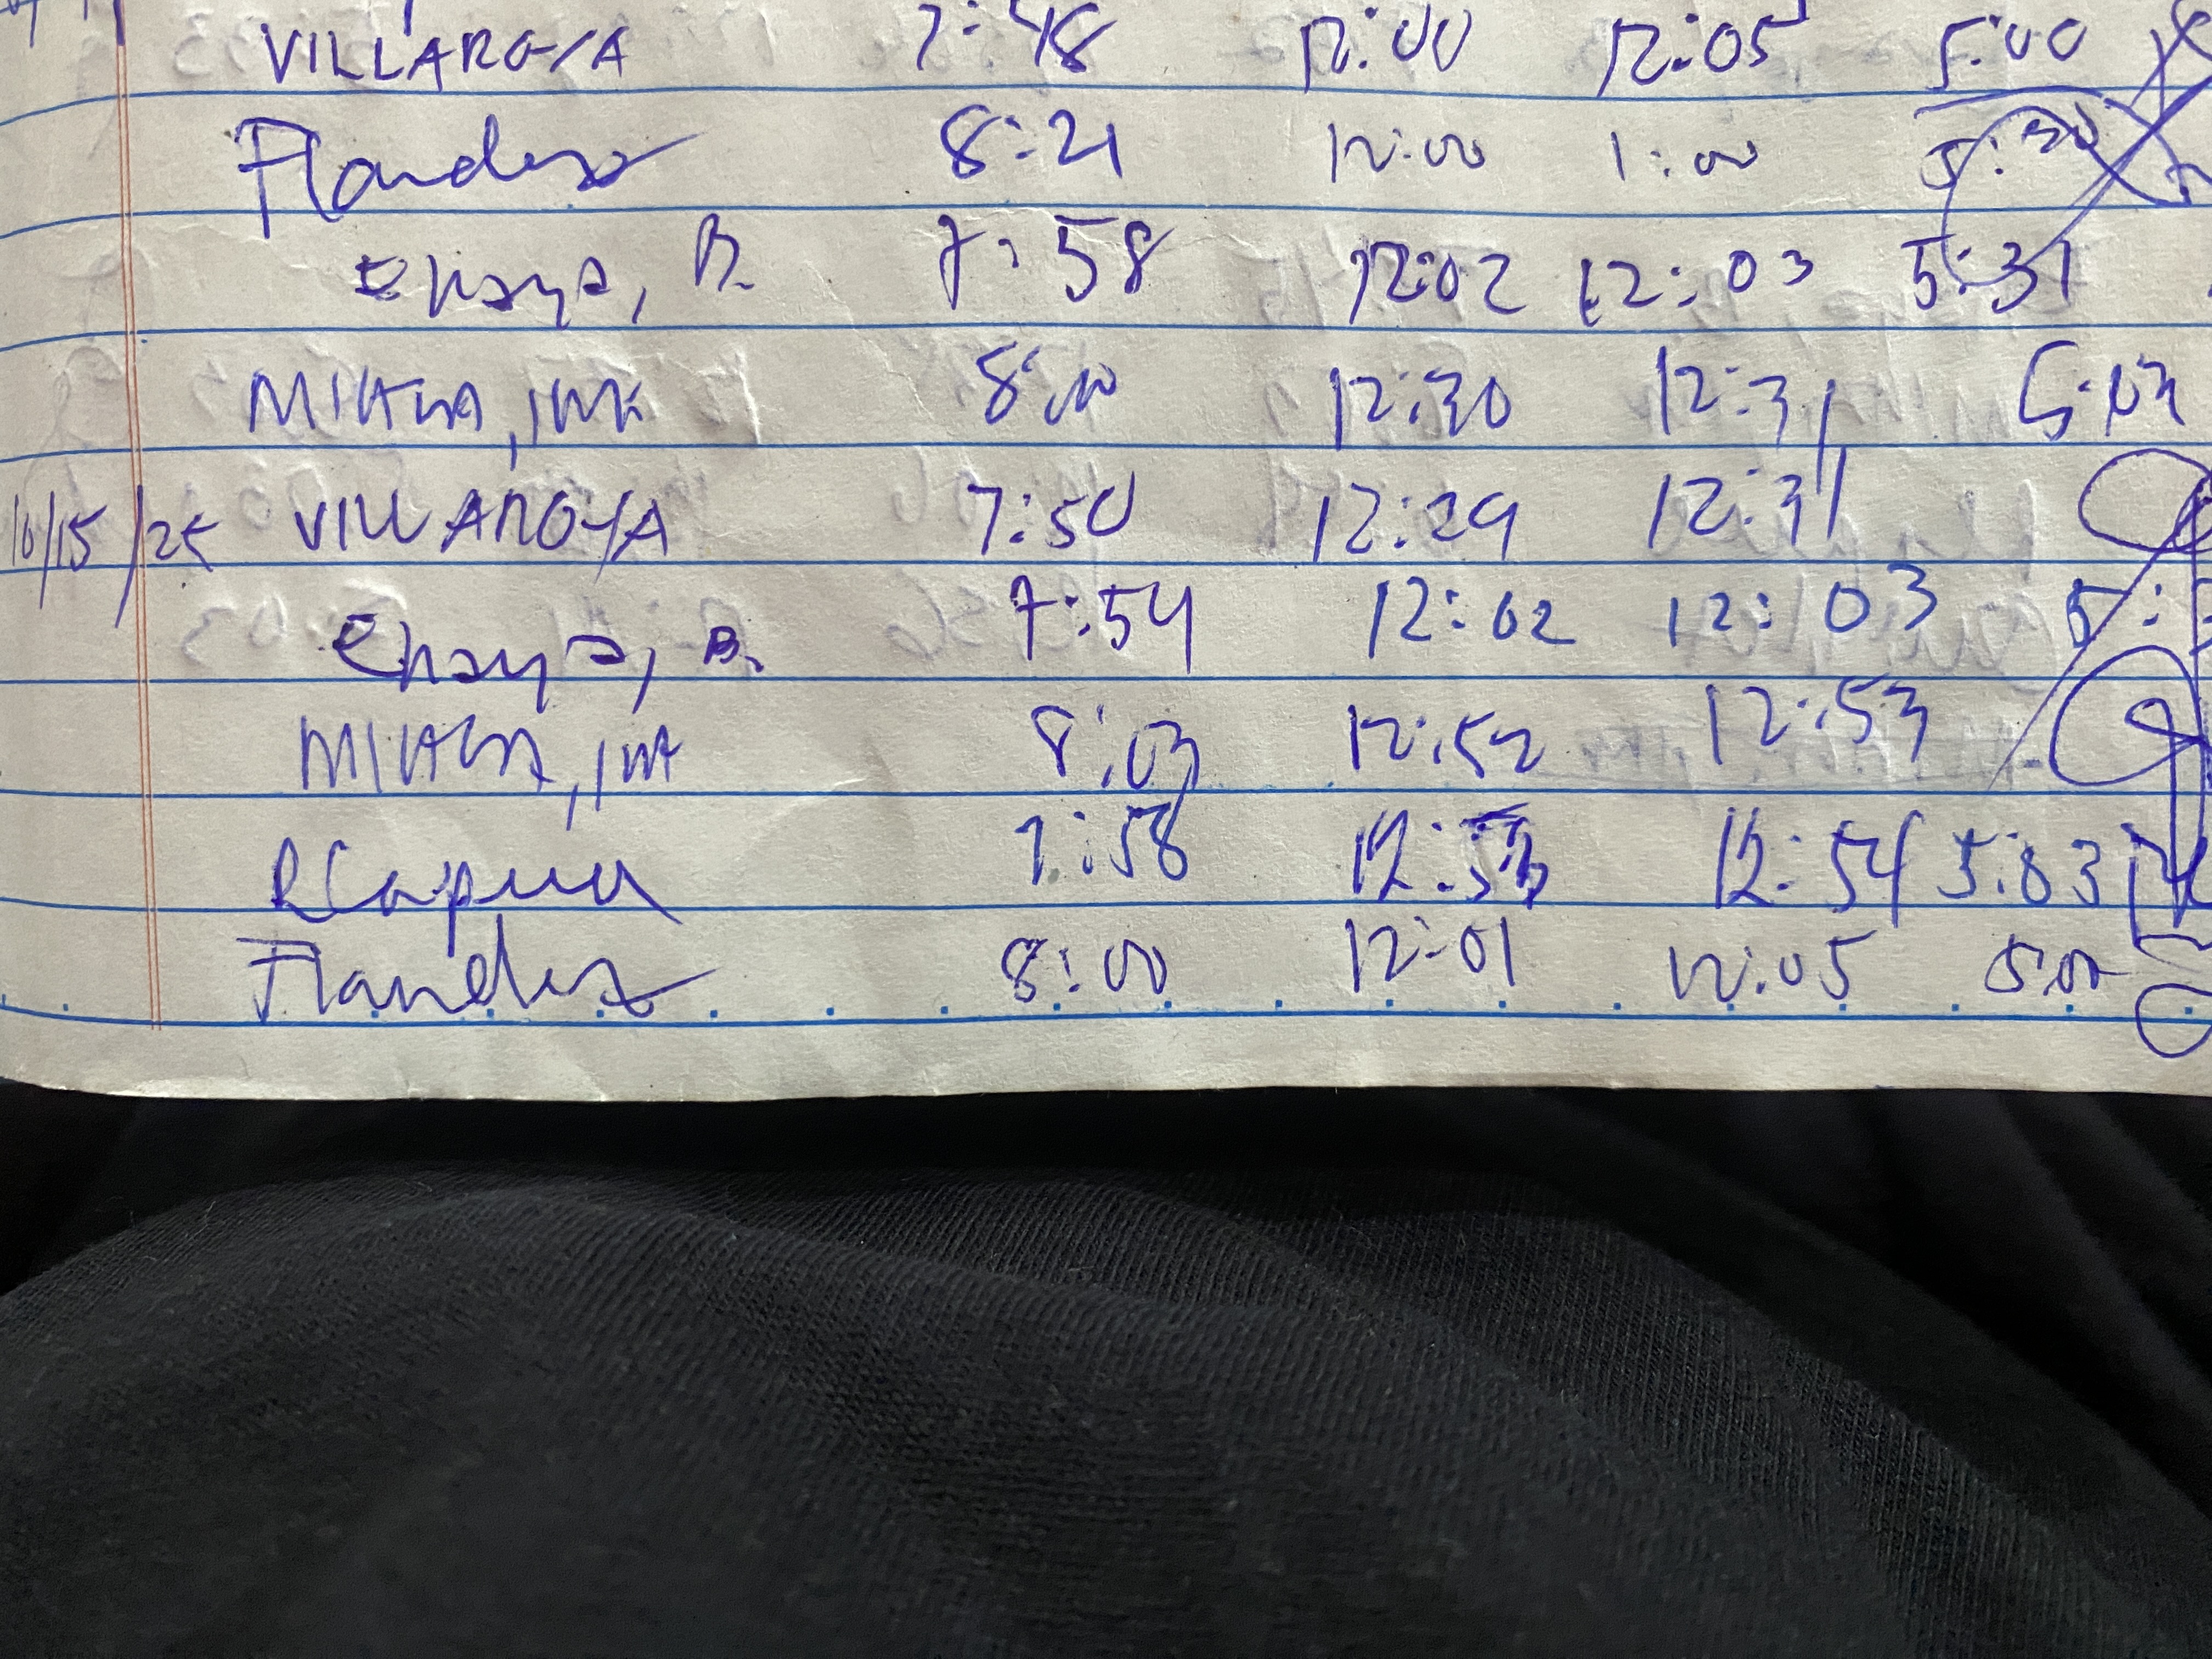 VILLAROYA 7:48 12:00 12:05 5:00
Flandez 8:21 12:00 1:00 5:30
Enaya, B. 7:58 12:02 12:03 5:31
8:00 12:30 12:31 5:03
10/15/25 VILLAROYA 7:50 12:29 12:31
Enaya, B. 7:54 12:02 12:03 5:
8:03 12:52 12:53
7:58 12:53 12:54 5:03
Flandez 8:00 12:01 12:05 5:00